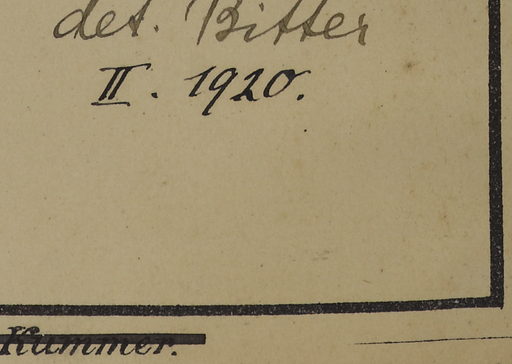 det. Bitter
II. 1920.
Kummer.